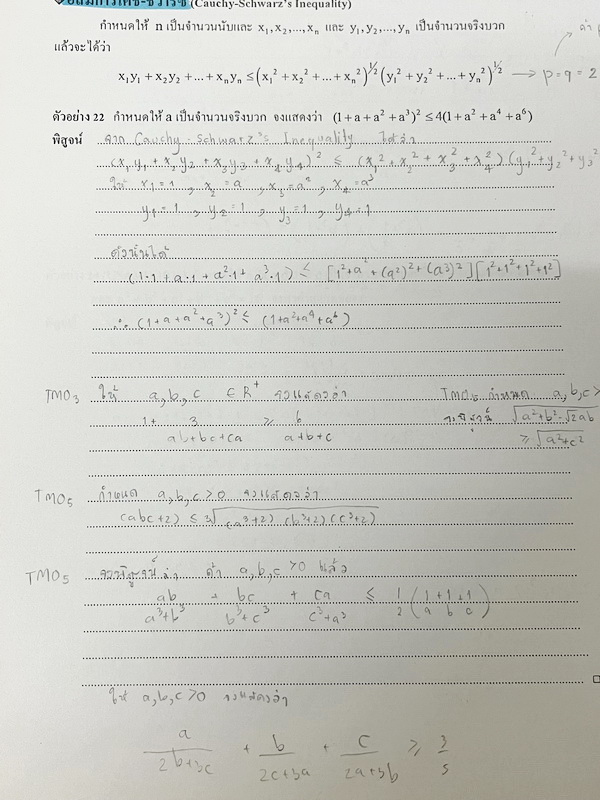 อสมการโคชี-ชวาร์ซ (Cauchy-Schwarz's Inequality)
กำหนดให้ n เป็นจำนวนนับและ x₁, x₂, ..., xₙ และ y₁, y₂, ..., yₙ เป็นจำนวนจริงบวก
แล้วจะได้ว่า
x₁y₁ + x₂y₂ + ... + xₙyₙ ≤ (x₁² + x₂² + ... + xₙ²)^½ (y₁² + y₂² + ... + yₙ²)^½ → p = q = 2
ตัวอย่าง 22 กำหนดให้ a เป็นจำนวนจริงบวก จงแสดงว่า (1 + a + a² + a³)² ≤ 4(1 + a² + a⁴ + a⁶)
พิสูจน์ จาก Cauchy-Schwarz's Inequality ได้ว่า
(x₁y₁ + x₂y₂ + x₃y₃ + x₄y₄)² ≤ (x₁² + x₂² + x₃² + x₄²)(y₁² + y₂² + y₃²
ให้ x₁ = 1, x₂ = a, x₃ = a², x₄ = a³
y₁ = 1, y₂ = 1, y₃ = 1, y₄ = 1
ดังนั้นได้
(1·1 + a·1 + a²·1 + a³·1) ≤ [1² + a² + (a²)² + (a³)²][1² + 1² + 1² + 1²]
∴ (1 + a + a² + a³)² ≤ (1 + a² + a⁴ + a⁶)
TMO3 ให้ a, b, c ∈ R⁺ จงแสดงว่า
1 + 3/(ab + bc + ca) ≥ 6/(a + b + c)
TMO5 กำหนด a, b, c >
จงพิสูจน์ √(a² + b² - √2ab)
≥ √(a² + c²)
TMO5 กำหนด a, b, c > 0 จงแสดงว่า
(abc + 2) ≤ ³√((a³ + 2)(b³ + 2)(c³ + 2))
TMO5 จงพิสูจน์ว่า ถ้า a, b, c > 0 แล้ว
ab/(a³ + b³) + bc/(b³ + c³) + ca/(c³ + a³) ≤ 1/2 (1/a + 1/b + 1/c)
ให้ a, b, c > 0 จงแสดงว่า
a/(2b + 3c) + b/(2c + 3a) + c/(2a + 3b) ≥ 3/5